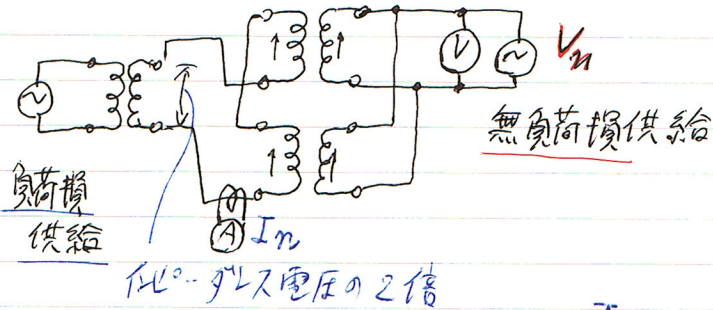 V
Vn
無負荷損供給
負荷損
供給
A
In
インピーダンス電圧の2倍